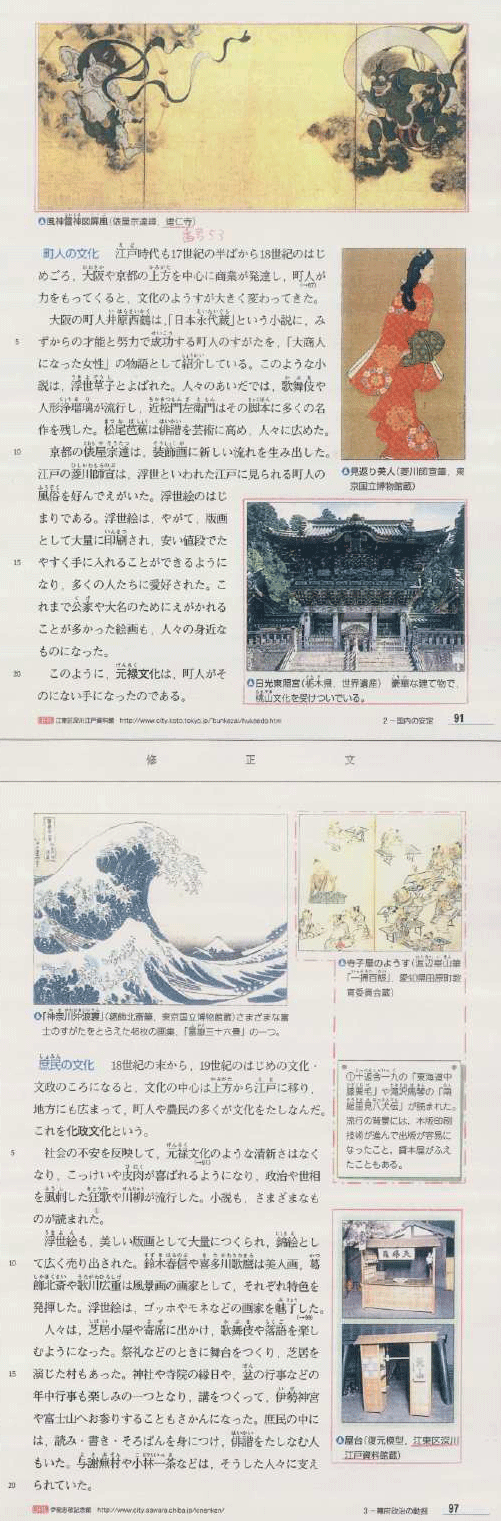 風神雷神図屏風(俵屋宗達筆，建仁寺)
番号53
町人の文化　江戸時代も17世紀の半ばから18世紀のはじ
めごろ，大阪や京都の上方を中心に商業が発達し，町人が
力をもってくると，文化のようすが大きく変わってきた。
大阪の町人井原西鶴は，「日本永代蔵」という小説に，み
5 ずからの才能と努力で成功する町人のすがたを，「大商人
になった女性」の物語として紹介している。このような小
説は，浮世草子とよばれた。人々のあいだでは，歌舞伎や
人形浄瑠璃が流行し，近松門左衛門はその脚本に多くの名
作を残した。松尾芭蕉は俳諧を芸術に高め，人々に広めた。
10 京都の俵屋宗達は，装飾画に新しい流れを生み出した。
江戸の菱川師宣は，浮世といわれた江戸に見られる町人の
風俗を好んでえがいた。浮世絵のはじ
まりである。浮世絵は，やがて，版画
として大量に印刷され，安い値段でた
15 やすく手に入れることができるように
なり，多くの人たちに愛好された。こ
れまで公家や大名のためにえがかれる
ことが多かった絵画も，人々の身近な
ものになった。
20 このように，元禄文化は，町人がそ
のにない手になったのである。
見返り美人(菱川師宣筆，東
京国立博物館蔵)
日光東照宮(栃木県，世界遺産)　豪華な建て物で，
桃山文化を受けついでいる。
URL 江東区深川江戸資料館
2－国内の安定 91
修　正　文
「神奈川沖浪裏」(葛飾北斎筆，東京国立博物館蔵)さまざまな富
士のすがたをとらえた46枚の画集，「富嶽三十六景」の一つ。
寺子屋のようす(渡辺崋山筆
「一掃百態」，愛知県田原町教
育委員会蔵)
庶民の文化　18世紀の末から，19世紀のはじめの文化・
文政のころになると，文化の中心は上方から江戸に移り，
地方にも広まって，町人や農民の多くが文化をたしなんだ。
これを化政文化という。
5 社会の不安を反映して，元禄文化のような清新さはなく
なり，こっけいや皮肉が喜ばれるようになり，政治や世相
を風刺した狂歌や川柳が流行した。小説も，さまざまなも
のが読まれた。①
浮世絵も，美しい版画として大量につくられ，錦絵とし
10 て広く売り出された。鈴木春信や喜多川歌麿は美人画，葛
飾北斎や歌川広重は風景画の画家として，それぞれ特色を
発揮した。浮世絵は，ゴッホやモネなどの画家を魅了した。
人々は，芝居小屋や寄席に出かけ，歌舞伎や落語を楽し
むようになった。祭礼などのときに舞台をつくり，芝居を
15 演じた村もあった。神社や寺院の縁日や，盆の行事などの
年中行事も楽しみの一つとなり，講をつくって，伊勢神宮
や富士山へお参りすることもさかんになった。庶民の中に
は，読み・書き・そろばんを身につけ，俳諧をたしなむ人
もいた。与謝蕪村や小林一茶などは，そうした人々に支え
20 られていた。
①十返舎一九の「東海道中
膝栗毛」や滝沢馬琴の「南
総里見八犬伝」が読まれた。
流行の背景には，木版印刷
技術が進んで出版が容易に
なったこと，貸本屋がふえ
たこともある。
屋台(復元模型，江東区深川
江戸資料館蔵)
URL 伊能忠敬記念館
3－幕府政治の動揺 97